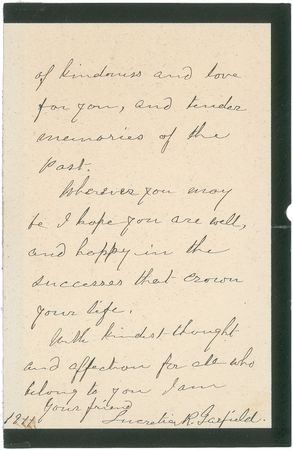 of kindness and love
for you, and tender
memories of the
past.
Wherever you may
be I hope you are well,
and happy in the
successes that crown
your life.
With kindest thought
and affection for all who
belong to you I am
Your friend
Lucretia R. Garfield.